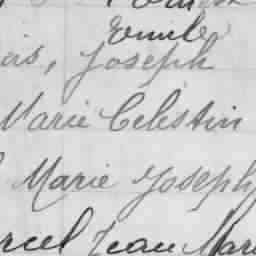 Emile
is, Joseph
Marie Celestin
Marie Joseph
rcel Jean Mari